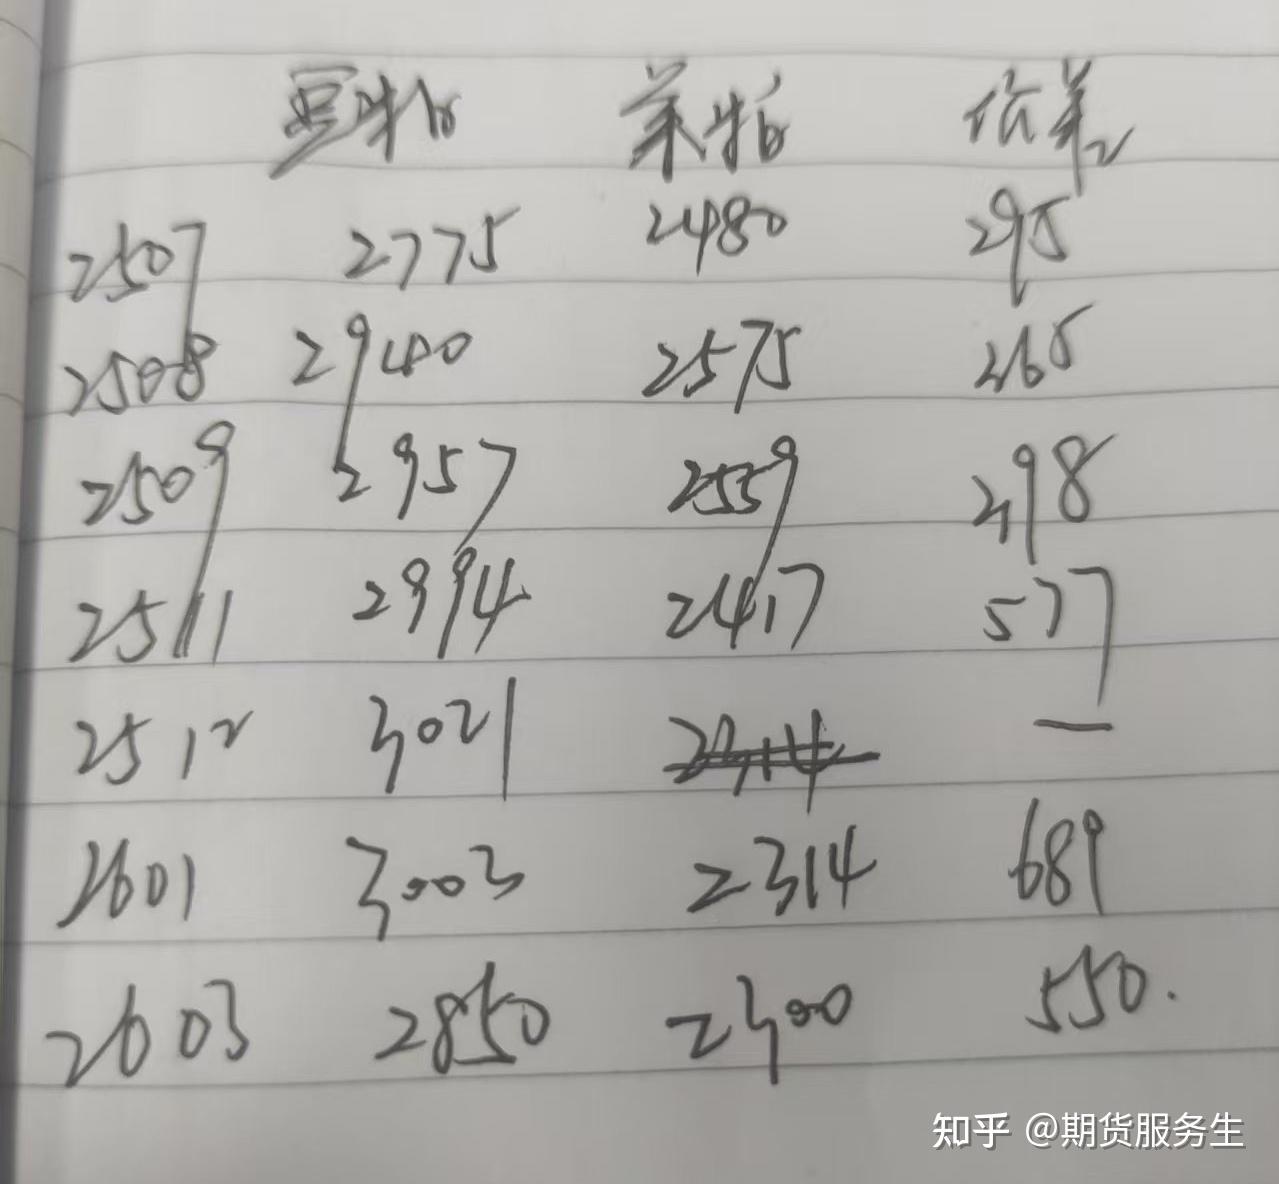 豆粕 菜粕 价差
2507 2775 2480 295
2508 2940 2575 265
2509 2957 2559 298
2511 2994 2417 577
2512 3021 2314 —
2601 3003 2314 689
2603 2850 2300 550.
知乎 @期货服务生